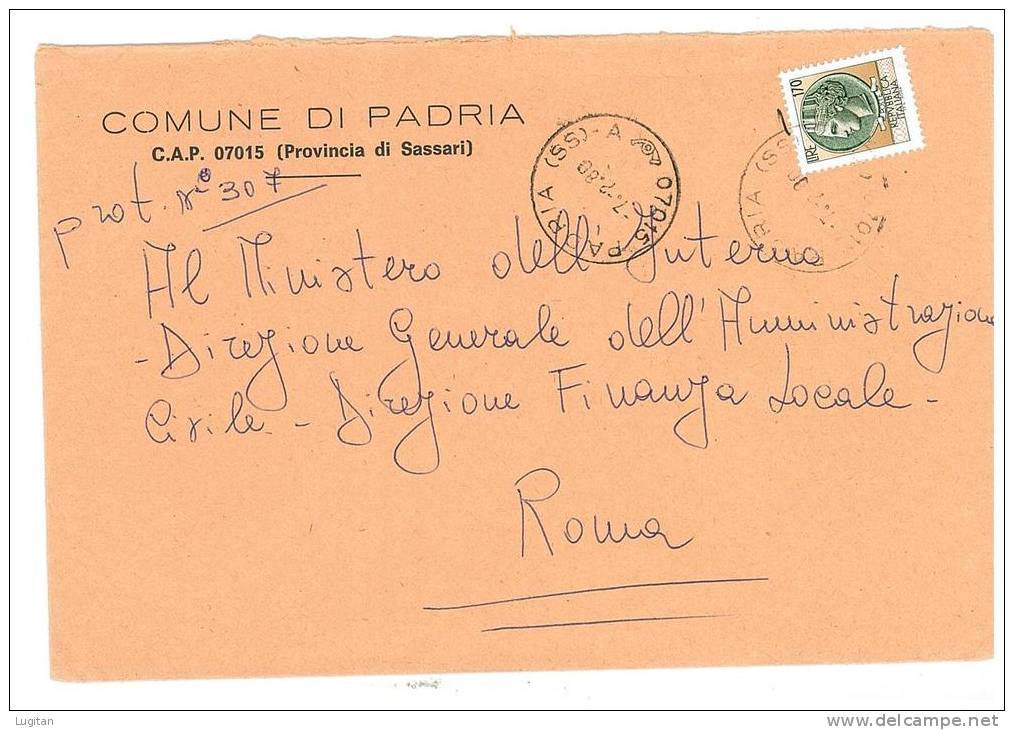 COMUNE DI PADRIA
C.A.P. 07015 (Provincia di Sassari)
prot. n° 307
PADRIA (SS) - A
07015
7.2.80
LIRE 170
REPVBBLICA
ITALIANA
PADRIA (SS)
Al Ministero dell'Interno
- Direzione Generale dell'Amministrazione
Civile - Direzione Finanza Locale -
Roma
Lugitan
www.delcampe.net